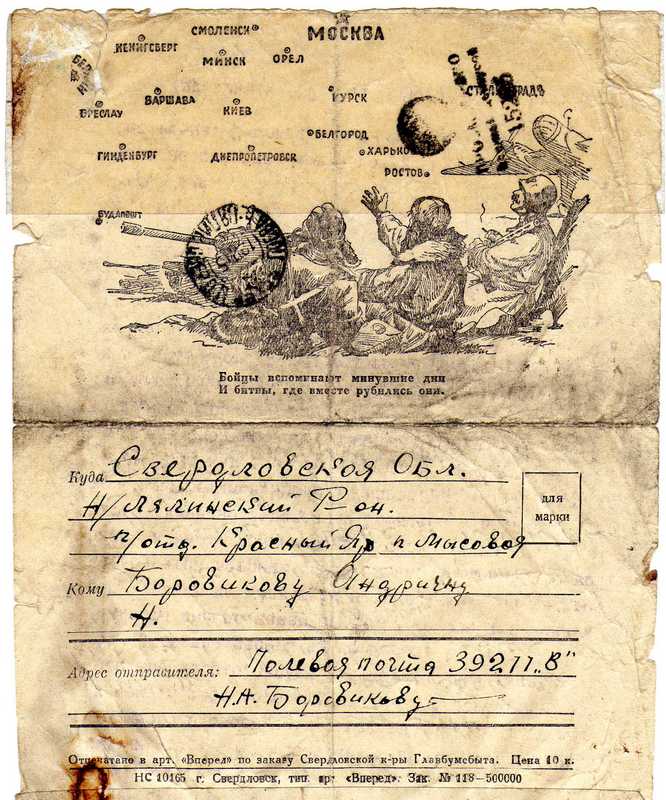 МОСКВА
СМОЛЕНСК
КЕНИГСБЕРГ
МИНСК
ОРЕЛ
БРЕСЛАУ
ВАРШАВА
КИЕВ
КУРСК
БЕЛГОРОД
ГИНДЕНБУРГ
ДНЕПРОПЕТРОВСК
ХАРЬКОВ
РОСТОВ
БУДАПЕШТ
Бойцы вспоминают минувшие дни
И битвы, где вместе рубились они.
Куда Свердловская Обл.
Н/Лялинский Р-он.
п/отд. Красный Яр п Мысовая
для
марки
Кому Боровикову Андричну
Н.
Адрес отправителя: Полевая почта 39211 „В"
Н.А. Боровикову
Отпечатано в арт. «Вперед» по заказу Свердловской к-ры Главбумсбыта. Цена 10 к.
НС 10165 г. Свердловск, тип. арт. «Вперед». Зак. № 118—500000